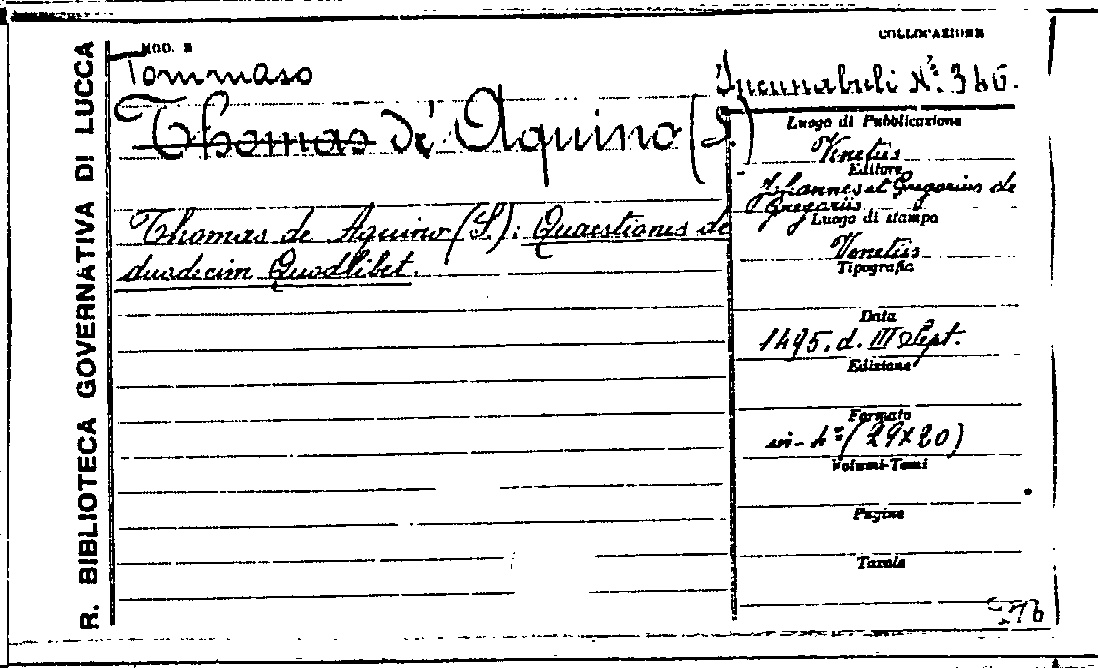 R. BIBLIOTECA GOVERNATIVA DI LUCCA
MOD. B
COLLOCAZIONE
Tommaso
Incunabuli N.º 346.
Thomas de Aquino (S.)
Luogo di Pubblicazione
Venetiis
Editore
Johannes et Gregorius de
Gregoriis
Luogo di stampa
Thomas de Aquino (S.): Quaestiones de
duodecim Quodlibet.
Venetiis
Tipografia
Data
1495. d. III Sept.
Edizione
Formato
in-4º (29x20)
Volumi-Tomi
Pagine
Tavole